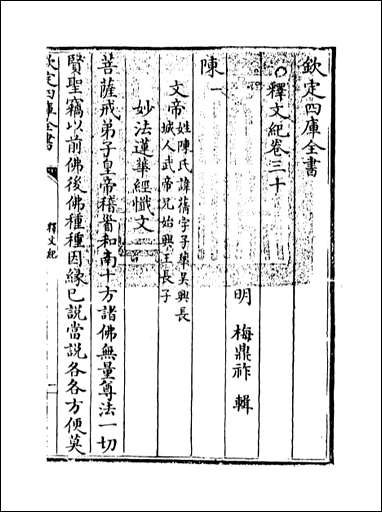 欽定四庫全書
釋文紀卷三十
明 梅鼎祚 輯
陳一
文帝 姓陳氏諱蒨字子華吳興長
城人武帝兄始興王長子
妙法蓮華經懺文
菩薩戒弟子皇帝稽首和南十方諸佛無量尊法一切
賢聖竊以前佛後佛種種因緣已說當說各各方便莫
欽定四庫全書
釋文紀